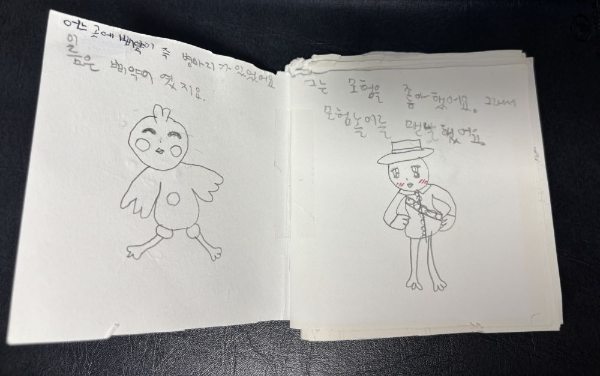 어느 곳에 삐약이 즉 병아리가 있었어요
이
름은 삐약이 였지요.
그는 모험을 좋아했어요. 그래서
모험놀이를 맨날 했어요.